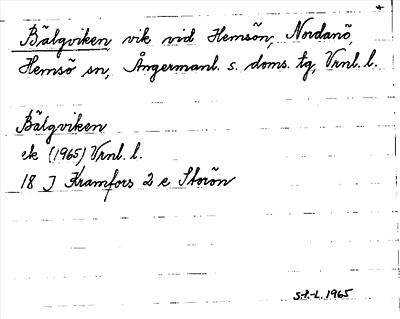 Bälgviken, vik vid Hemsön, Nordanö
Hemsö sn, Ångermanl. s. doms. tg, Vrnl. l.
Bälgviken
ek (1965) Vrnl. l.
18 J Kramfors 2 e Storön
S.P.-L. 1965